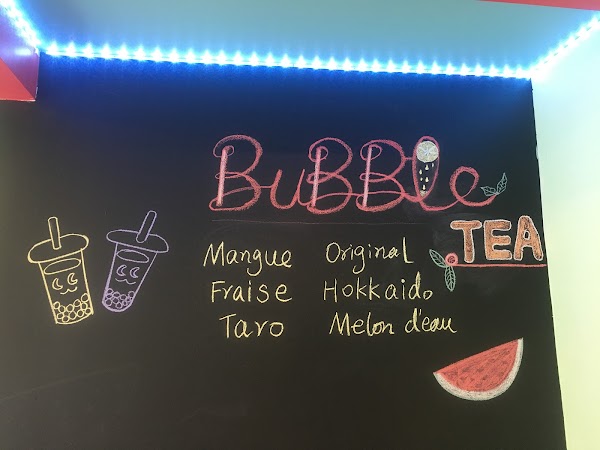 BuBBle
TEA
Mangue Original
Fraise Hokkaido
Taro Melon d'eau